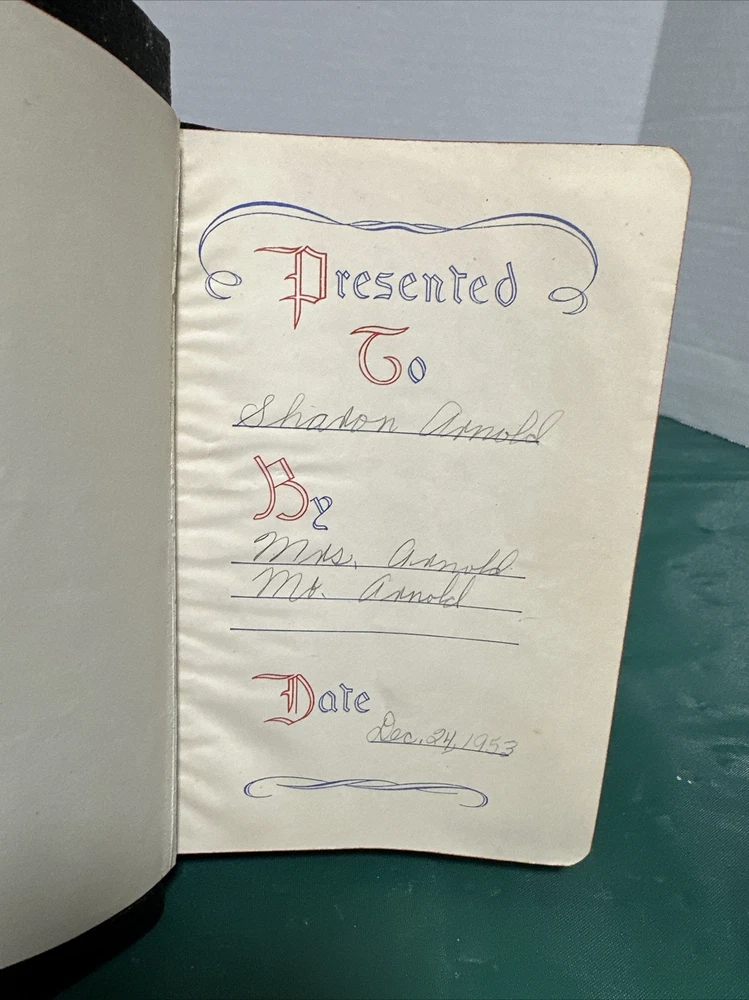 Presented
To
Sharon Arnold
By
Mrs. Arnold
Mr. Arnold
Date
Dec. 24, 1953